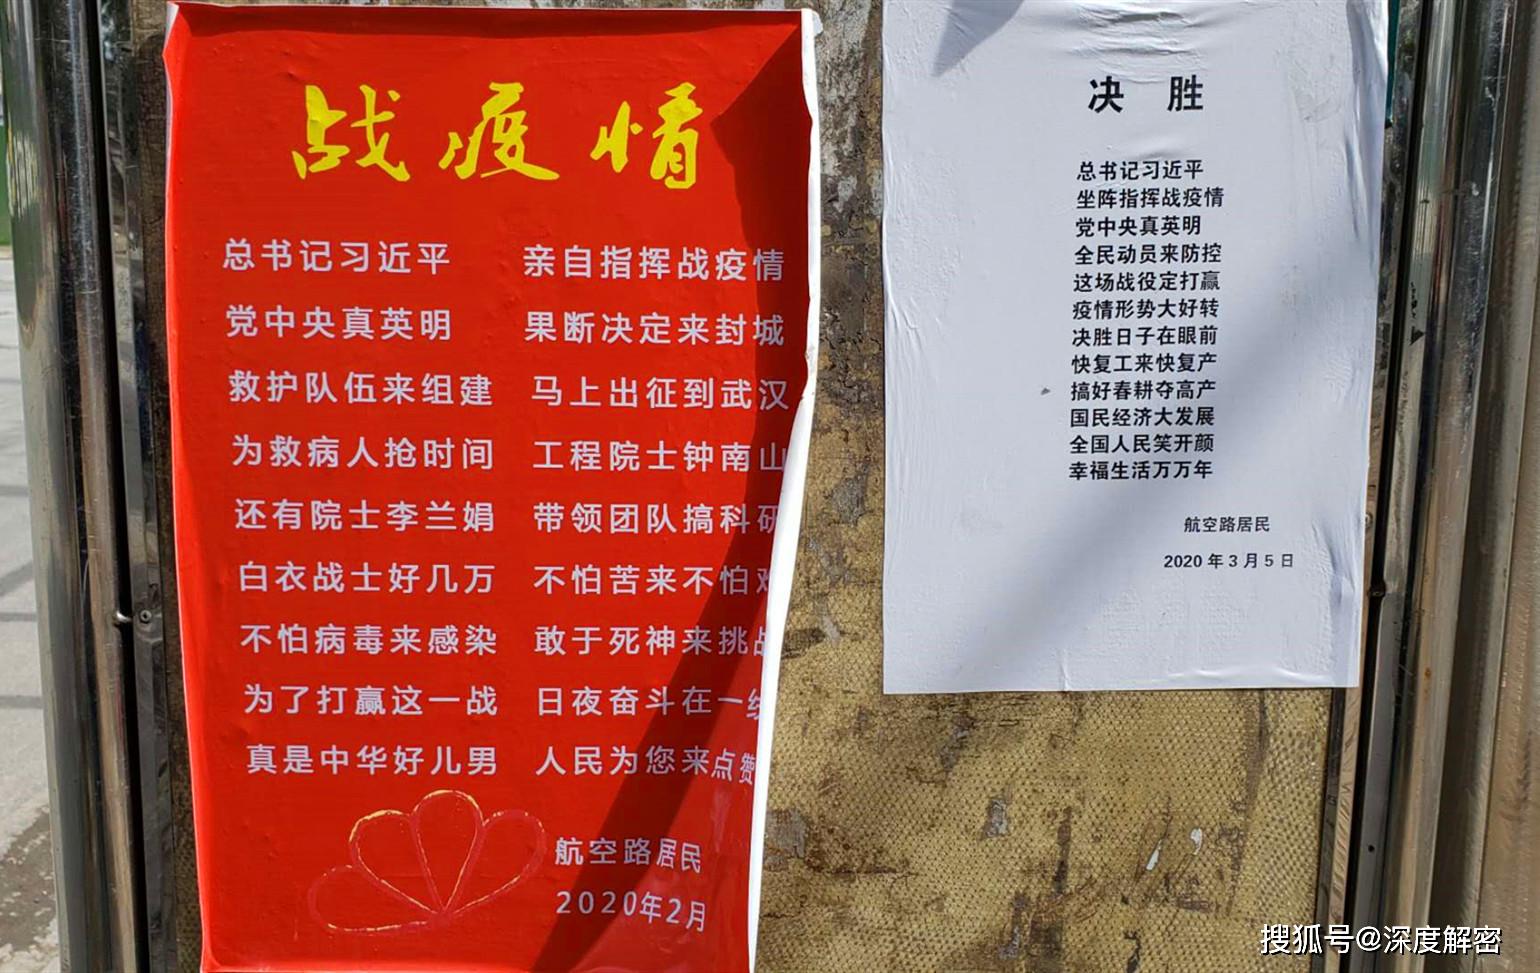 战疫情
总书记习近平 亲自指挥战疫情
党中央真英明 果断决定来封城
救护队伍来组建 马上出征到武汉
为救病人抢时间 工程院士钟南山
还有院士李兰娟 带领团队搞科研
白衣战士好几万 不怕苦来不怕难
不怕病毒来感染 敢于死神来挑战
为了打赢这一战 日夜奋斗在一线
真是中华好儿男 人民为您来点赞
航空路居民
2020年2月
决 胜
总书记习近平
坐阵指挥战疫情
党中央真英明
全民动员来防控
这场战役定打赢
疫情形势大好转
决胜日子在眼前
快复工来快复产
搞好春耕夺高产
国民经济大发展
全国人民笑开颜
幸福生活万万年
航空路居民
2020年3月5日
搜狐号@深度解密